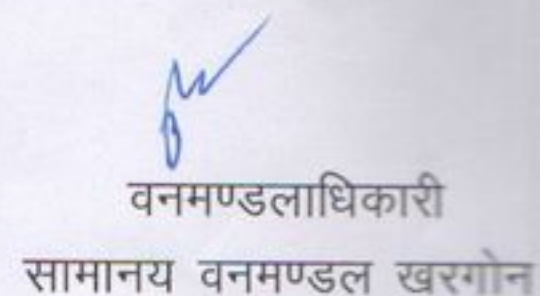 वनमण्डलाधिकारी
सामानय वनमण्डल खरगोन